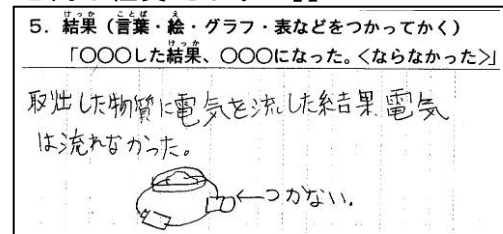 5. 結果（言葉・絵・グラフ・表などをつかってかく）
「〇〇〇した結果、〇〇〇になった。<ならなかった>」
取出した物質に電気を流した結果電気
は流れなかった。
←つかない.